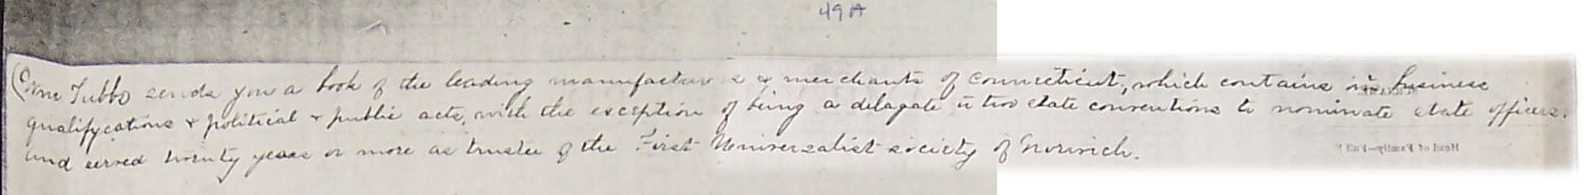 49A
(Wm Tubbs sends you a book of the leading manufacturers & merchants of Connecticut, which contains his business
qualifycations & political & public acts, with the exception of being a delagate to two state conventions to nominate state officers.
and served twenty years or more as trustee of the First Universalist society of Norwich.